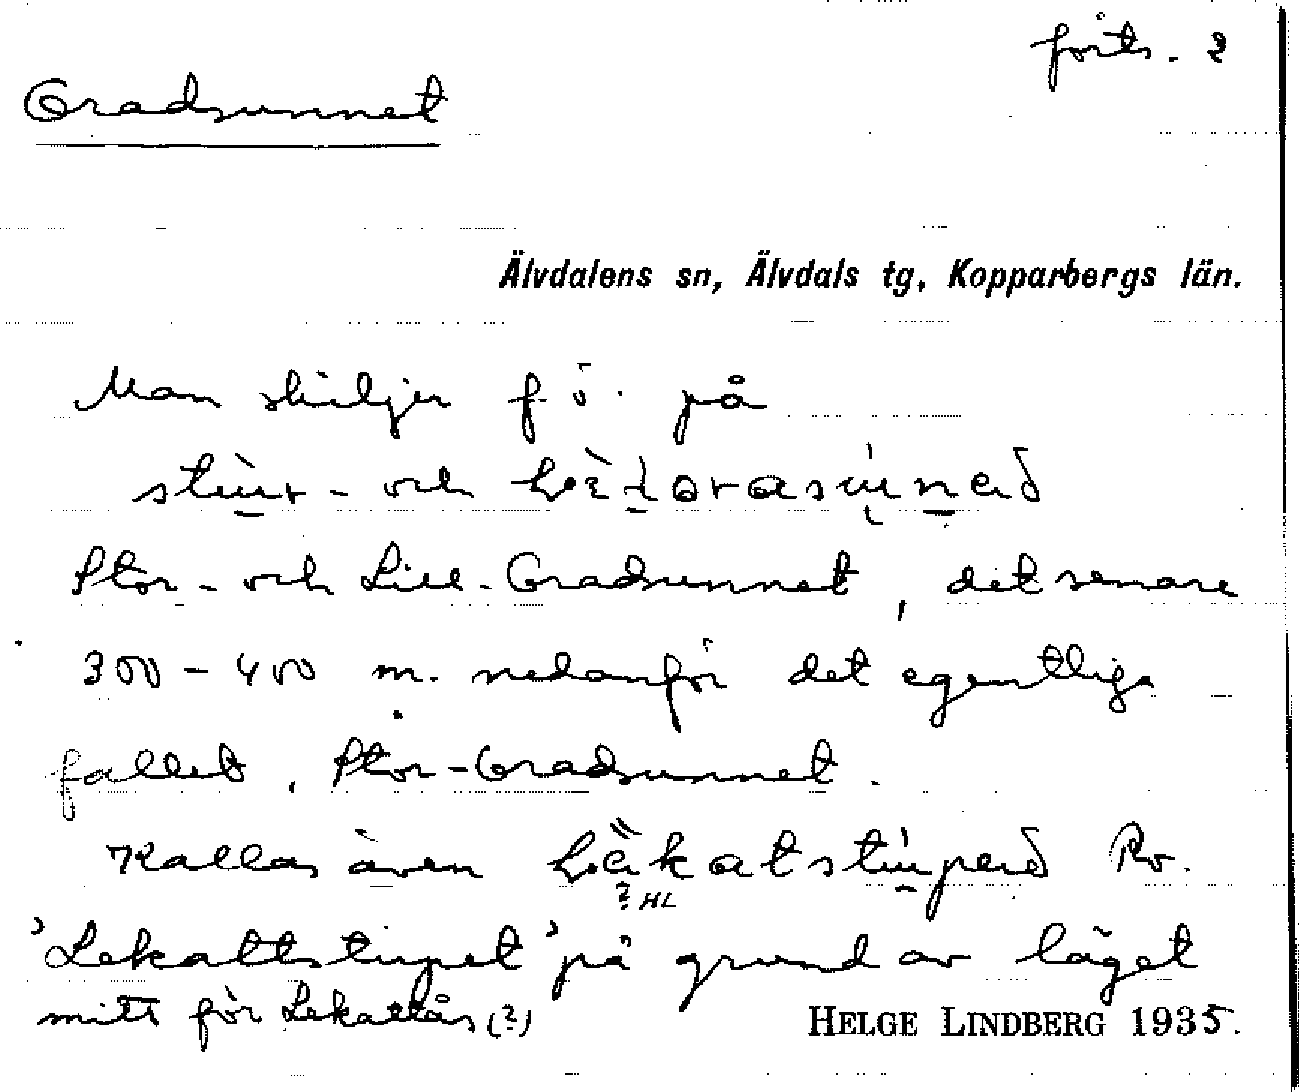 forts. 2
Gradsunnet
Älvdalens sn, Älvdals tg, Kopparbergs län.
Man skiljer f ö. på
stùr- och
Stor- och Lill-Gradsunnet, det senare
300-400 m. nedanför det egentliga
fallet, Stor-Gradsunnet.
Kallas även Rv.
'Lekattstupet' på grund av läget
mitt för Lekattås (?)
? HL
HELGE LINDBERG 1935.